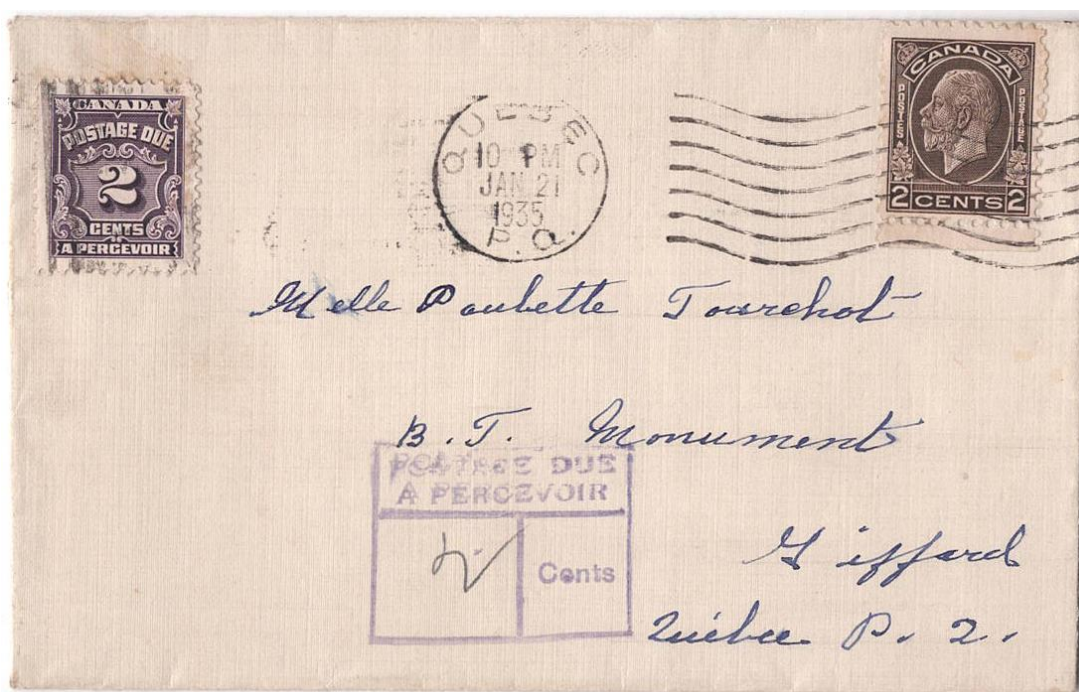 CANADA
POSTAGE DUE
2
CENTS
A PERCEVOIR
QUEBEC
10 PM
JAN 21
1935
P.Q.
CANADA
POSTES POSTAGE
2 CENTS 2
Melle Paulette Tourchot
B.T. Monument
POSTAGE DUE
A PERCEVOIR
2 Cents
Giffard
Québec P. Q.